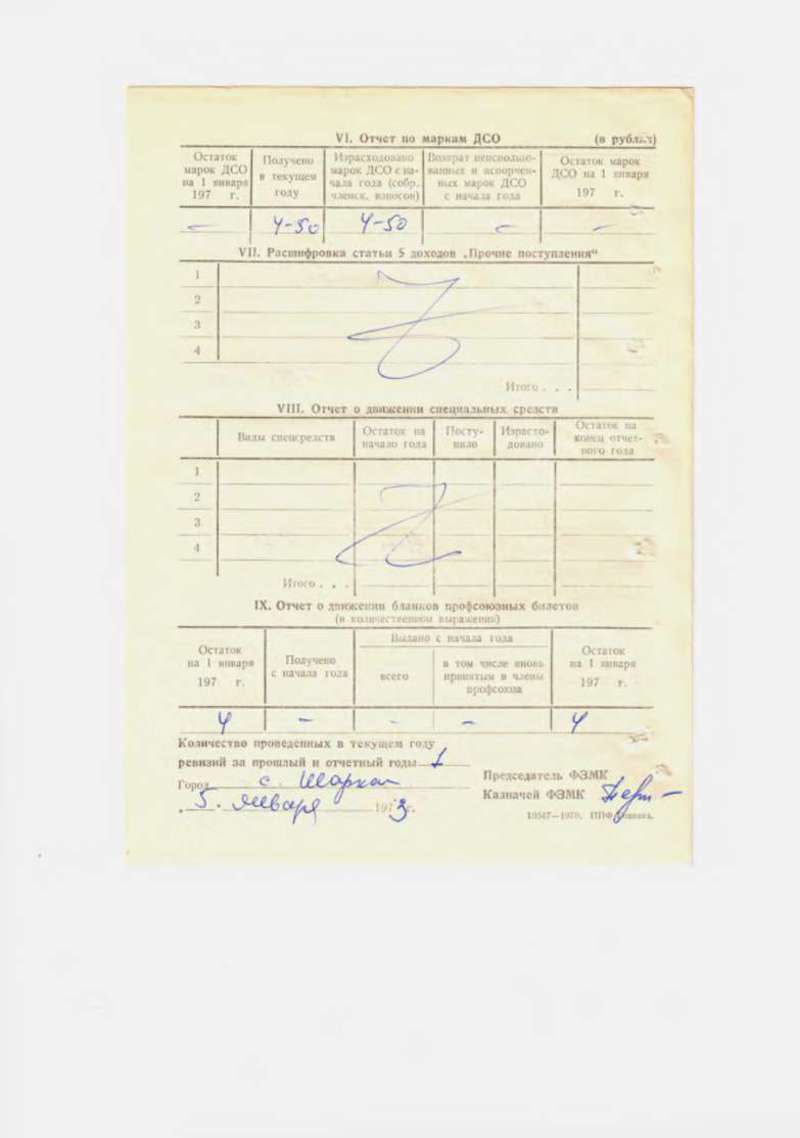 VI. Отчет по маркам ДСО (в рублях)
Остаток марок ДСО на 1 января 197 г.
Получено в текущем году
Израсходовано марок ДСО с начала года (собр. членск. взносов)
Возврат неиспользованных и испорченных марок ДСО с начала года
Остаток марок ДСО на 1 января 197 г.
— 4-50 4-50 — —
VII. Расшифровка статьи 5 доходов „Прочие поступления“
1
2
3
4
Итого . . .
VIII. Отчет о движении специальных средств
Виды спецсредств
Остаток на начало года
Поступило
Израсходовано
Остаток на конец отчетного года
1
2
3
4
Итого . . .
IX. Отчет о движении бланков профсоюзных билетов
(в количественном выражении)
Остаток на 1 января 197 г.
Получено с начала года
Выдано с начала года
всего
в том числе вновь принятым в члены профсоюза
Остаток на 1 января 197 г.
4 — — — 4
Количество проведенных в текущем году
ревизий за прошлый и отчетный годы 1
Город с. Шаркан
5. января 1973 г.
Председатель ФЗМК
Казначей ФЗМК
19547—1970. ППФ